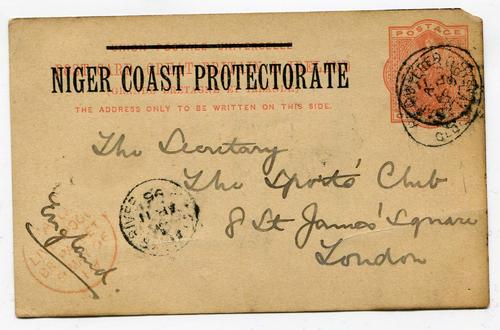 POSTAGE
UNION POSTALE UNIVERSELLE
NIGER COAST PROTECTORATE
THE ADDRESS ONLY TO BE WRITTEN ON THIS SIDE.
The Secretary
The Sports' Club
8 St James' Square
London
England.
AP 11
95